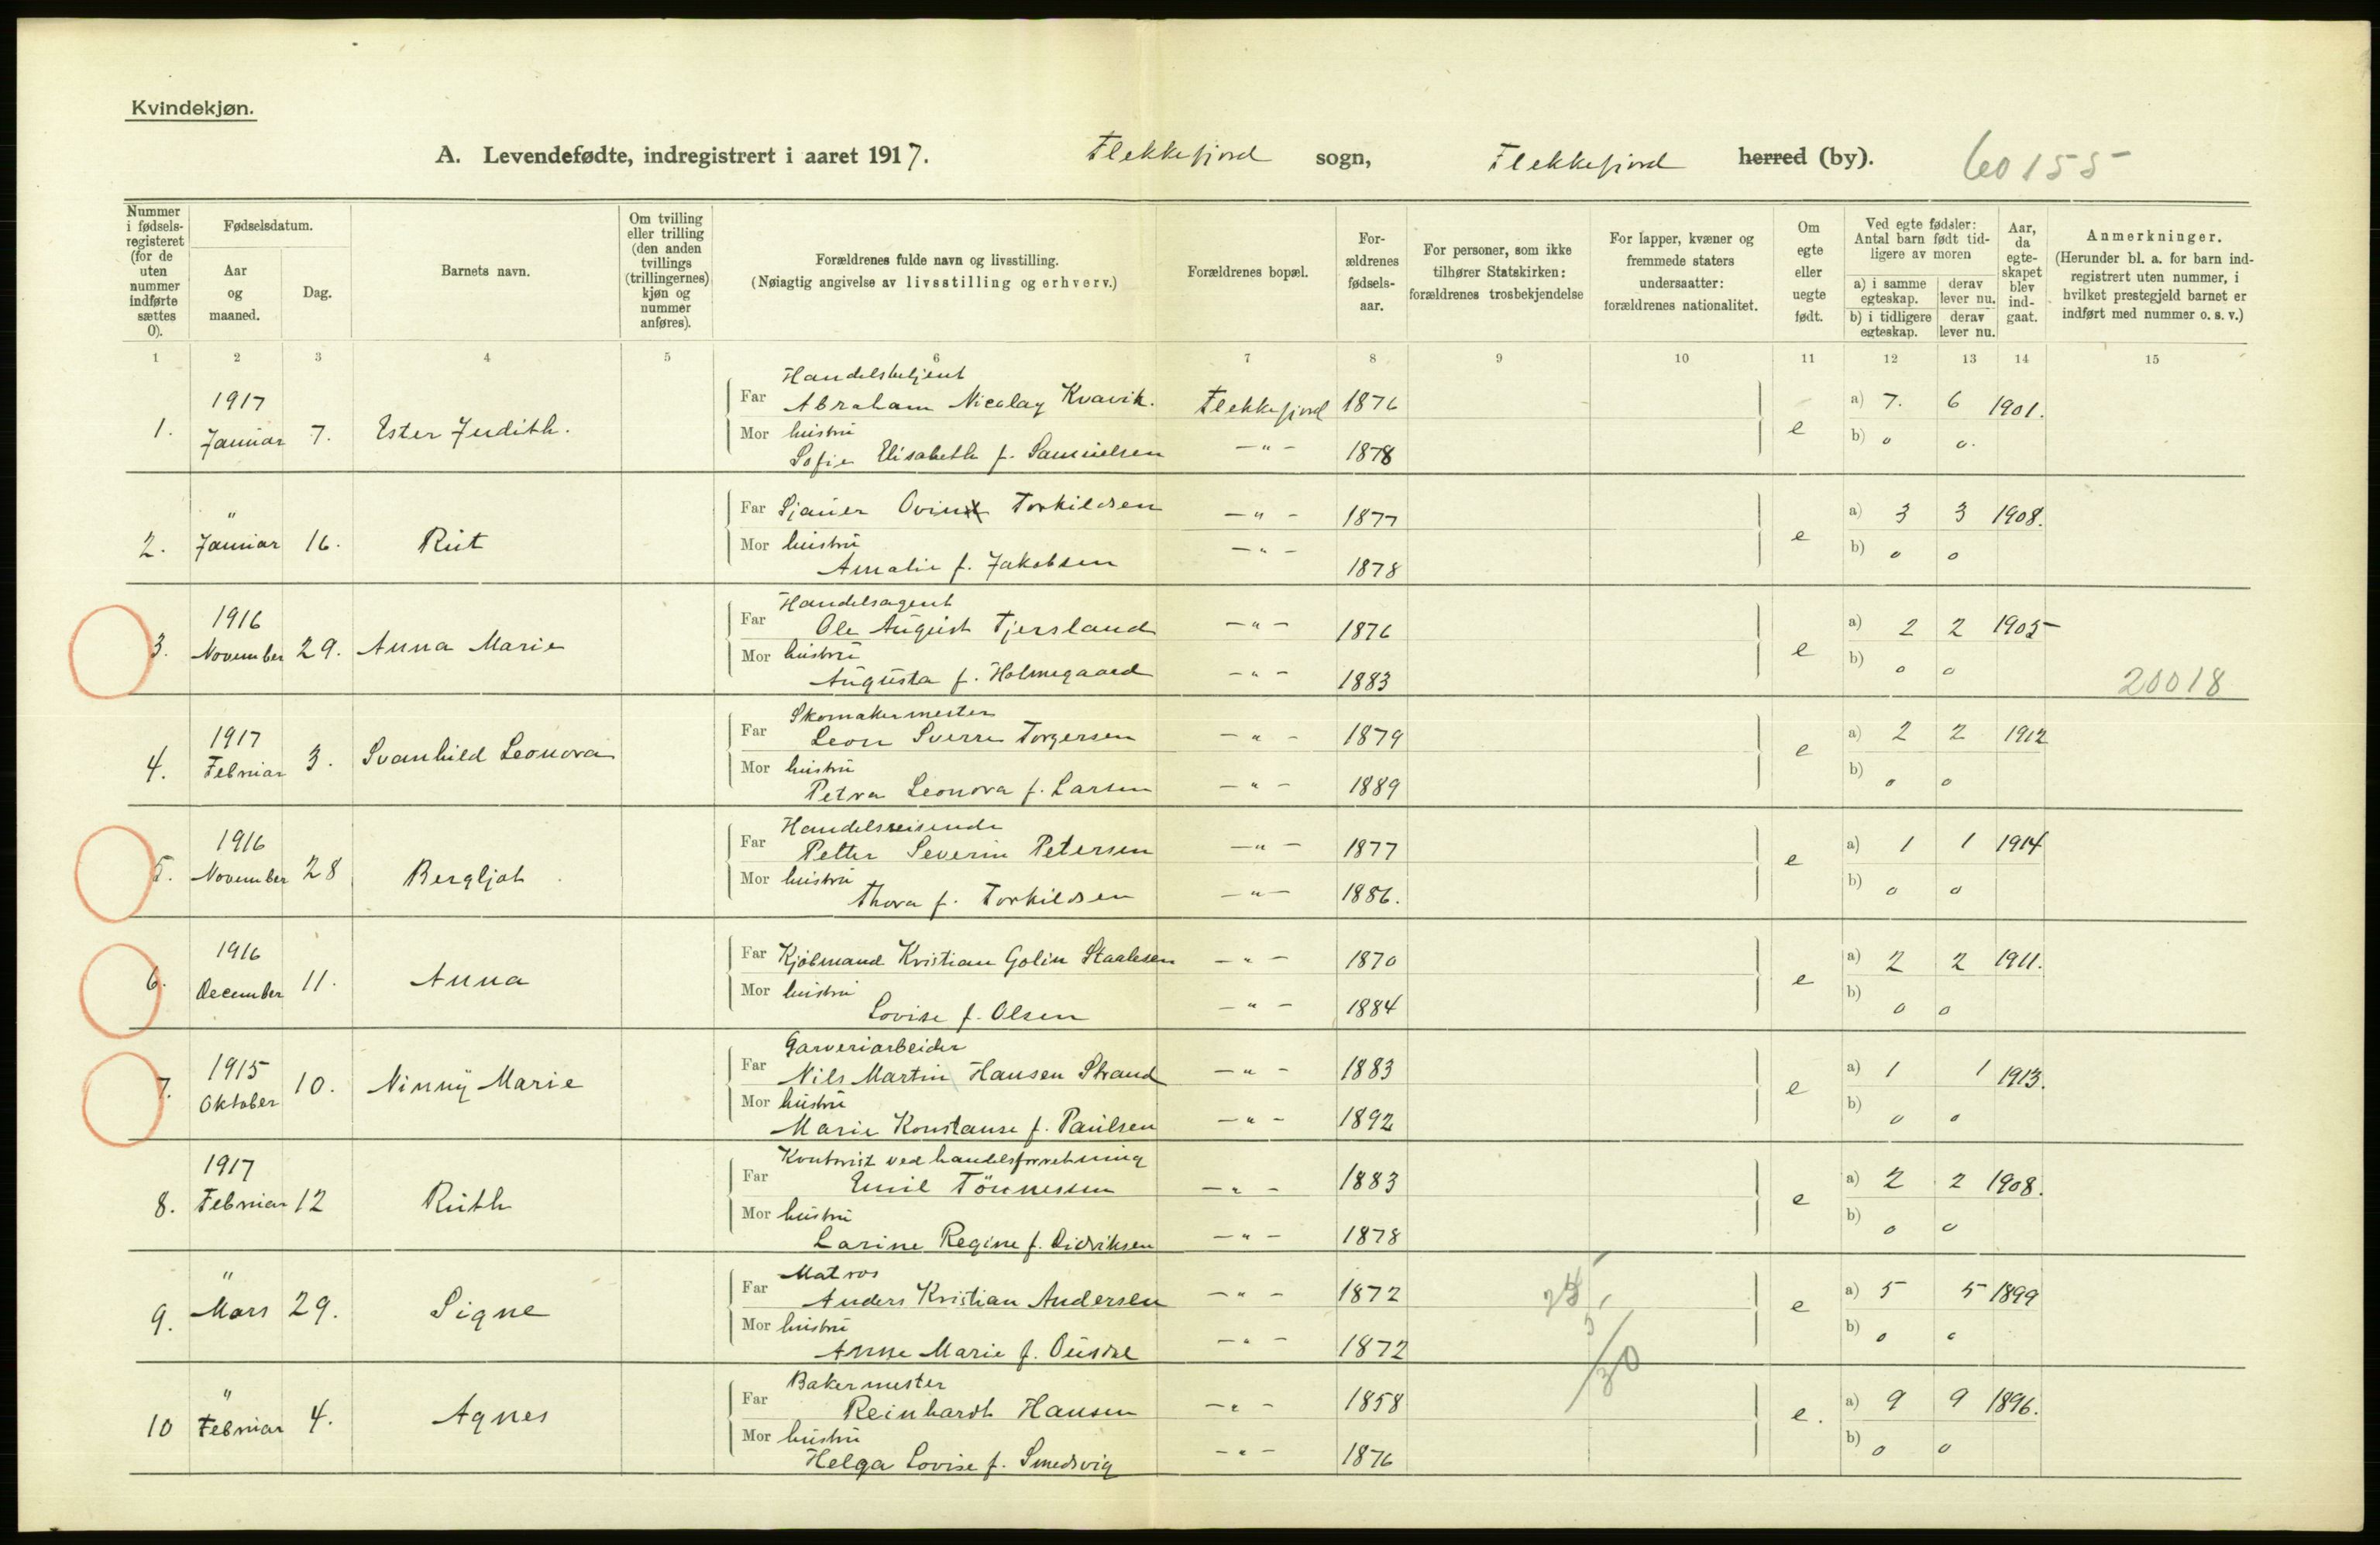 Kvindekjøn.
A. Levendefødte, indregistrert i aaret 1917. Flekkefjord sogn, Flekkefjord herred (by). 60155
Nummer i fødsels-registeret (for de uten nummer indførte sættes 0).
Fødselsdatum.
Aar og maaned.
Dag.
Barnets navn.
Om tvilling eller trilling (den anden tvillings (trillingernes) kjøn og nummer anføres).
Forældrenes fulde navn og livsstilling.
(Nøiagtig angivelse av livsstilling og erhverv.)
Forældrenes bopæl.
For-ældrenes fødsels-aar.
For personer, som ikke tilhører Statskirken: forældrenes trosbekjendelse
For lapper, kvæner og fremmede staters undersaatter: forældrenes nationalitet.
Om egte eller uegte født.
Ved egte fødsler: Antal barn født tid-ligere av moren
a) i samme egteskap. derav lever nu.
b) i tidligere egteskap. derav lever nu.
Aar, da egte-skapet blev ind-gaat.
Anmerkninger.
(Herunder bl. a. for barn ind-registrert uten nummer, i hvilket prestegjeld barnet er indført med nummer o. s. v.)
1 2 3 4 5 6 7 8 9 10 11 12 13 14 15
Handelsbetjent
1917 Far Abraham Nicolay Kvavik. Flekkefjord 1876 a) 7. 6 1901.
1. Januar 7. Ester Judith. Mor hustru e b) 0 0.
Sofie Elisabeth f. Samuelsen —"— 1878
" Far Sjauer Ovin Torkildsen —"— 1877 a) 3 3 1908.
2. Januar 16. Rut Mor hustru —"— e b) 0 0
Amalie f. Jakobsen 1878
Handelsagent
1916 Far Ole August Tjersland —"— 1876 a) 2 2 1905
3. November 29. Anna Marie Mor hustru e b) 0 0
Augusta f. Holmegaard —"— 1883 20018
Skomakermester
1917 Far Leon Sverre Torgersen —"— 1879 a) 2 2 1912
4. Februar 3. Svanhild Leonora Mor hustru e b) 0 0
Petra Leonora f. Larsen —"— 1889
Handelsreisende
1916 Far Petter Severin Petersen —"— 1877 a) 1 1 1914
5. November 28 Bergljot Mor hustru e b) 0 0
Thora f. Torkildsen —"— 1886.
1916 Far Kjøbmand Kristian Golin Staalesen —"— 1870 a) 2 2 1911.
6. December 11. Anna Mor hustru e b) 0 0
Lovise f. Olsen —"— 1884
Garveriarbeider
1915 Far Nils Martin Hansen Strand —"— 1883 a) 1 1 1913.
7. Oktober 10. Ninny Marie Mor hustru e b) 0 0
Marie Konstanse f. Paulsen —"— 1892
Kontorist ved handelsforretning
1917 Far Emil Tönnessen —"— 1883 a) 2 2 1908.
8. Februar 12 Ruth Mor hustru e b) 0 0
Larine Regine f. Didriksen —"— 1878
Matros
" Far Anders Kristian Andersen —"— 1872 a) 5 5 1899
9. Mars 29. Signe Mor hustru e b) 0 0
Anne Marie f. —"— 1872
Bakermester
" Far Reinhardt Hansen —"— 1858 a) 9 9 1896.
10 Februar 4. Agnes Mor hustru e. b) 0 0
Helga Lovise f. Smedsvig —"— 1876